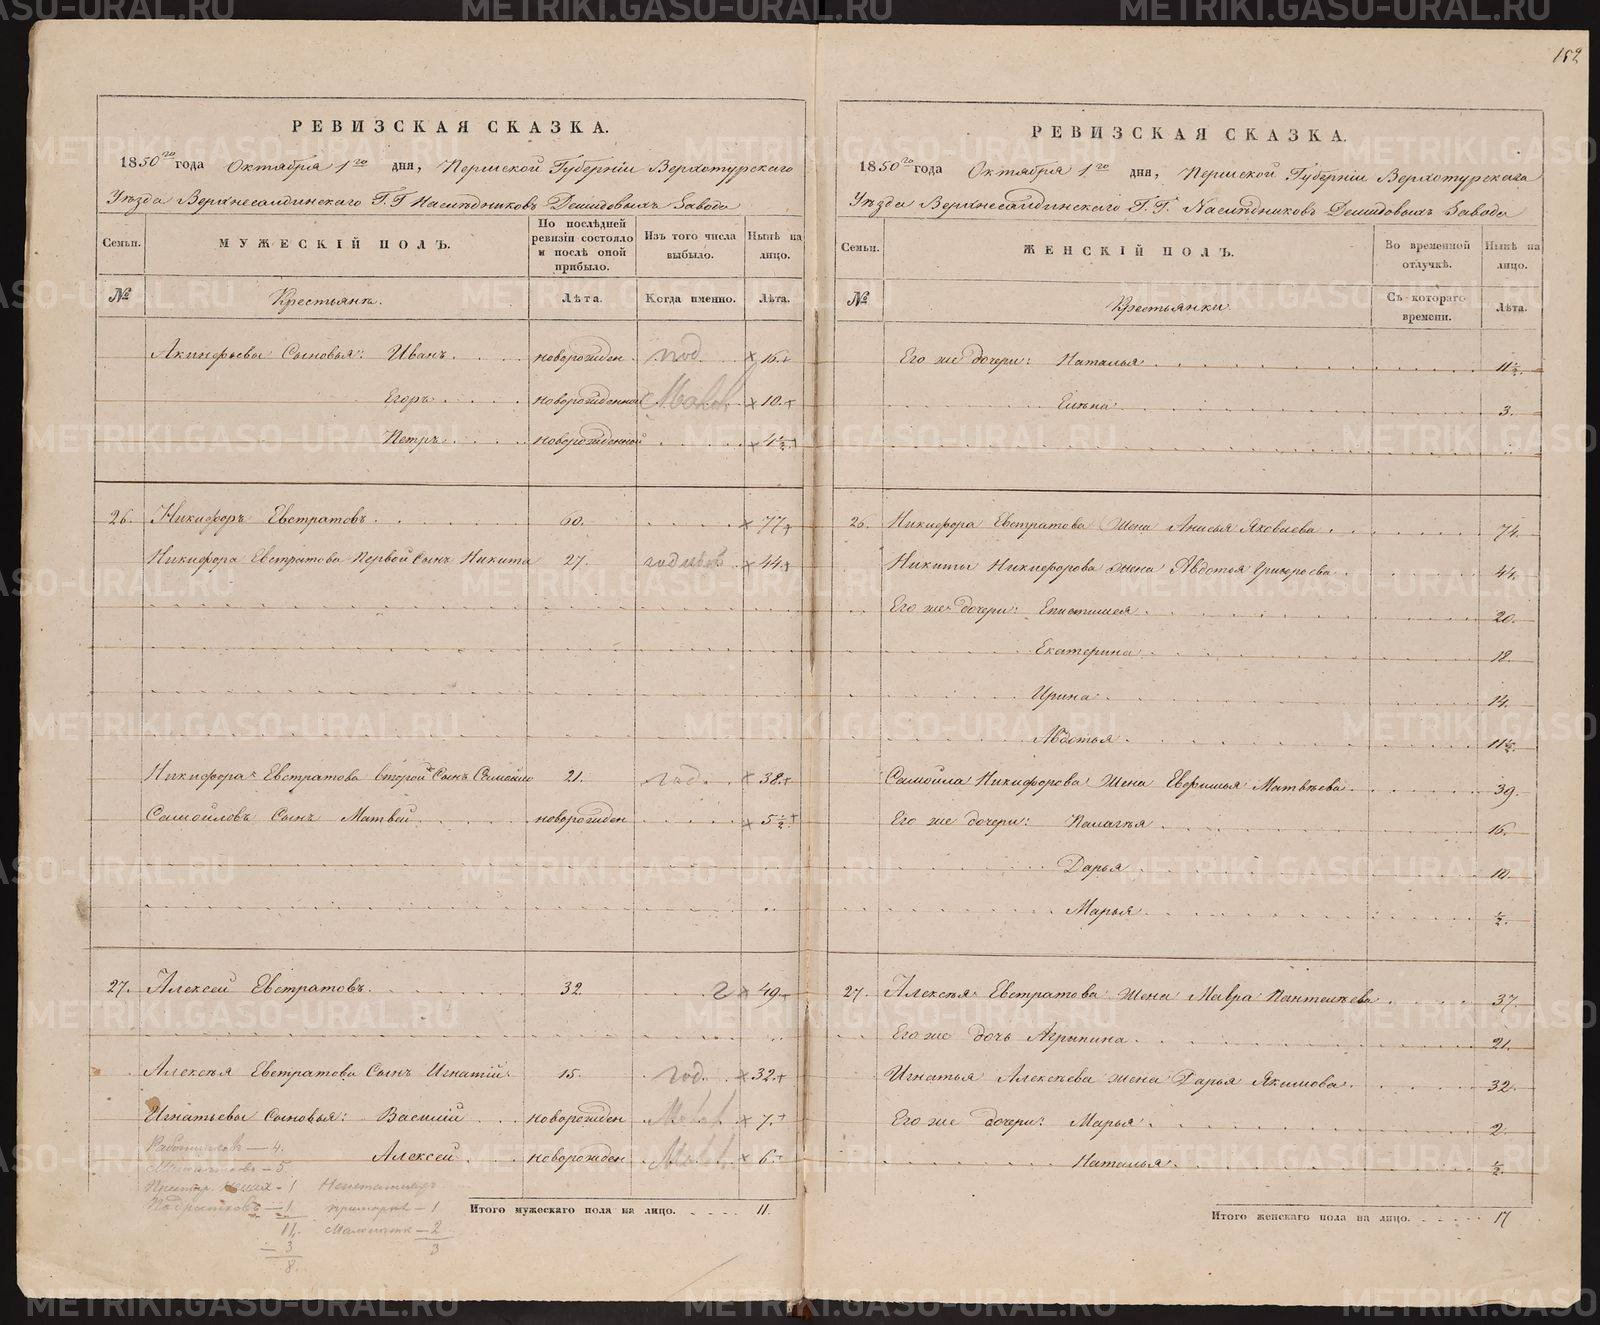 152
РЕВИЗСКАЯ СКАЗКА.
1850го года Октября 1го дня, Пермской Губерніи Верхотурскаго
Уѣзда Верхнесалдинскаго Г. Г. Наслѣдниковъ Демидовыхъ Завода
Семьи. МУЖЕСКІЙ ПОЛЪ. По послѣдней ревизіи состояло и послѣ оной прибыло. Изъ того числа выбыло. Нынѣ на лицо.
№ Крестьянъ. Лѣта. Когда именно. Лѣта.
Акинфьевы Сыновья: Иванъ новорожден год × 16.+
Егоръ новорожденной × 10.+
Петръ новорожденной × 4½+
26. Никифоръ Евстратовъ. 60. × 77+
Никифора Евстратова Первой Сынъ Никита 27. × 44+
Никифора Евстратова Второй Сынъ Самойло 21. год × 38+
Самойловъ Сынъ Матвей новорожден × 5½+
27. Алексей Евстратовъ. 32. г × 49+
Алексѣя Евстратова Сынъ Игнатій 15. год. × 32.+
Игнатьевы Сыновья: Василій новорожден × 7.+
Алексей новорожден × 6+
— 4.
— 5
- 1
— 1 — 1
11. — 2
— 3 3
8.
Итого мужескаго пола на лицо. 11.
РЕВИЗСКАЯ СКАЗКА.
1850го года Октября 1го дня, Пермской Губерніи Верхотурскаго
Уѣзда Верхнесалдинскаго Г. Г. Наслѣдниковъ Демидовыхъ Завода
Семьи. ЖЕНСКІЙ ПОЛЪ. Во временной отлучкѣ. Нынѣ на лицо.
№ Крестьянки Съ котораго времени. Лѣта.
Его же дочери: Наталья 11½.
Елѣна 3.
26. Никифора Евстратова Жена Анисья Яковлева 74.
Никиты Никифорова жена Авдотья Григорьева 44.
Его же дочери: Епистимея 20.
Екатерина 18.
Ирина 14.
Авдотья 11½.
Самойла Никифорова Жена Евфимья Матвѣева 39.
Его же дочери: Палагѣя 16.
Дарья 10.
Марья ½.
27. Алексѣя Евстратова жена Мавра Пантелѣева 37.
Его же дочь Агрипина 21.
Игнатья Алексѣева жена Дарья Якимова 32.
Его же дочери: Марья 2.
Наталья ½.
Итого женскаго пола на лицо. 17
METRIKI.GASO-URAL.RU